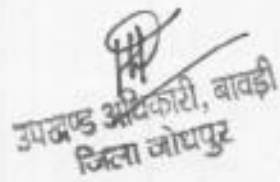 उपखण्ड अधिकारी, बावड़ी
जिला जोधपुर